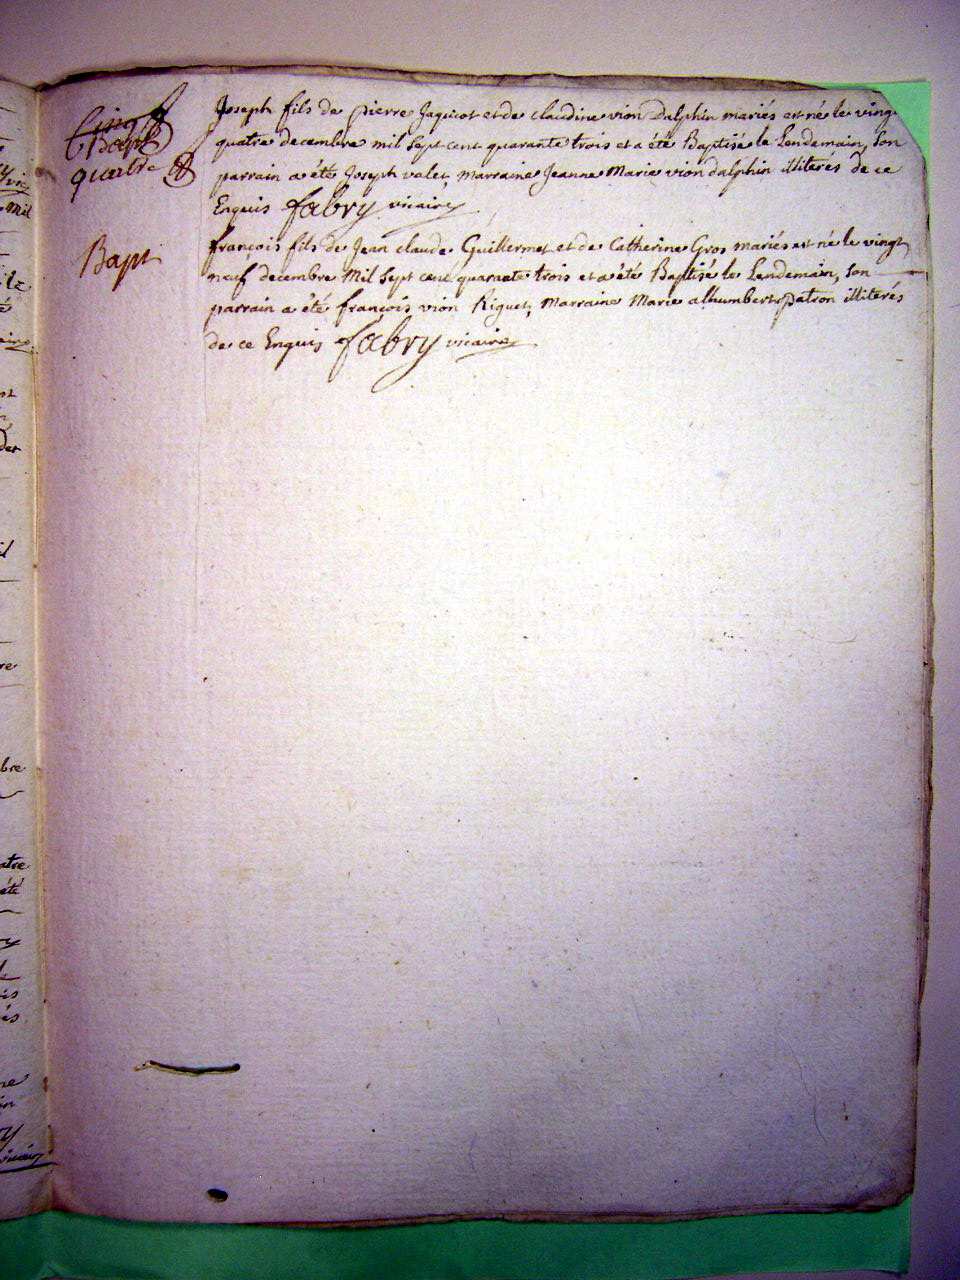 Bapt
quatre
Joseph fils de pierre Jaquiot et de claudine vion Dalphin mariés est né le ving
quatre decembre mil sept cent quarante trois et a été Baptisé le Lendemain, son
parrain a été Joseph valet, marraine Jeanne Marie vion dalphin illiterés de ce
Enquis fabry vicaire
Bapt
françois fils de Jean claude Guillermet et de Catherine Gros mariés est né le vingt
neuf decembre Mil sept cent quarante trois et a été Baptisé le Lendemain, son
parrain a été françois vion Riguet, Marraine Marie alhumbert patron illiterés
de ce Enquis fabry vicaire